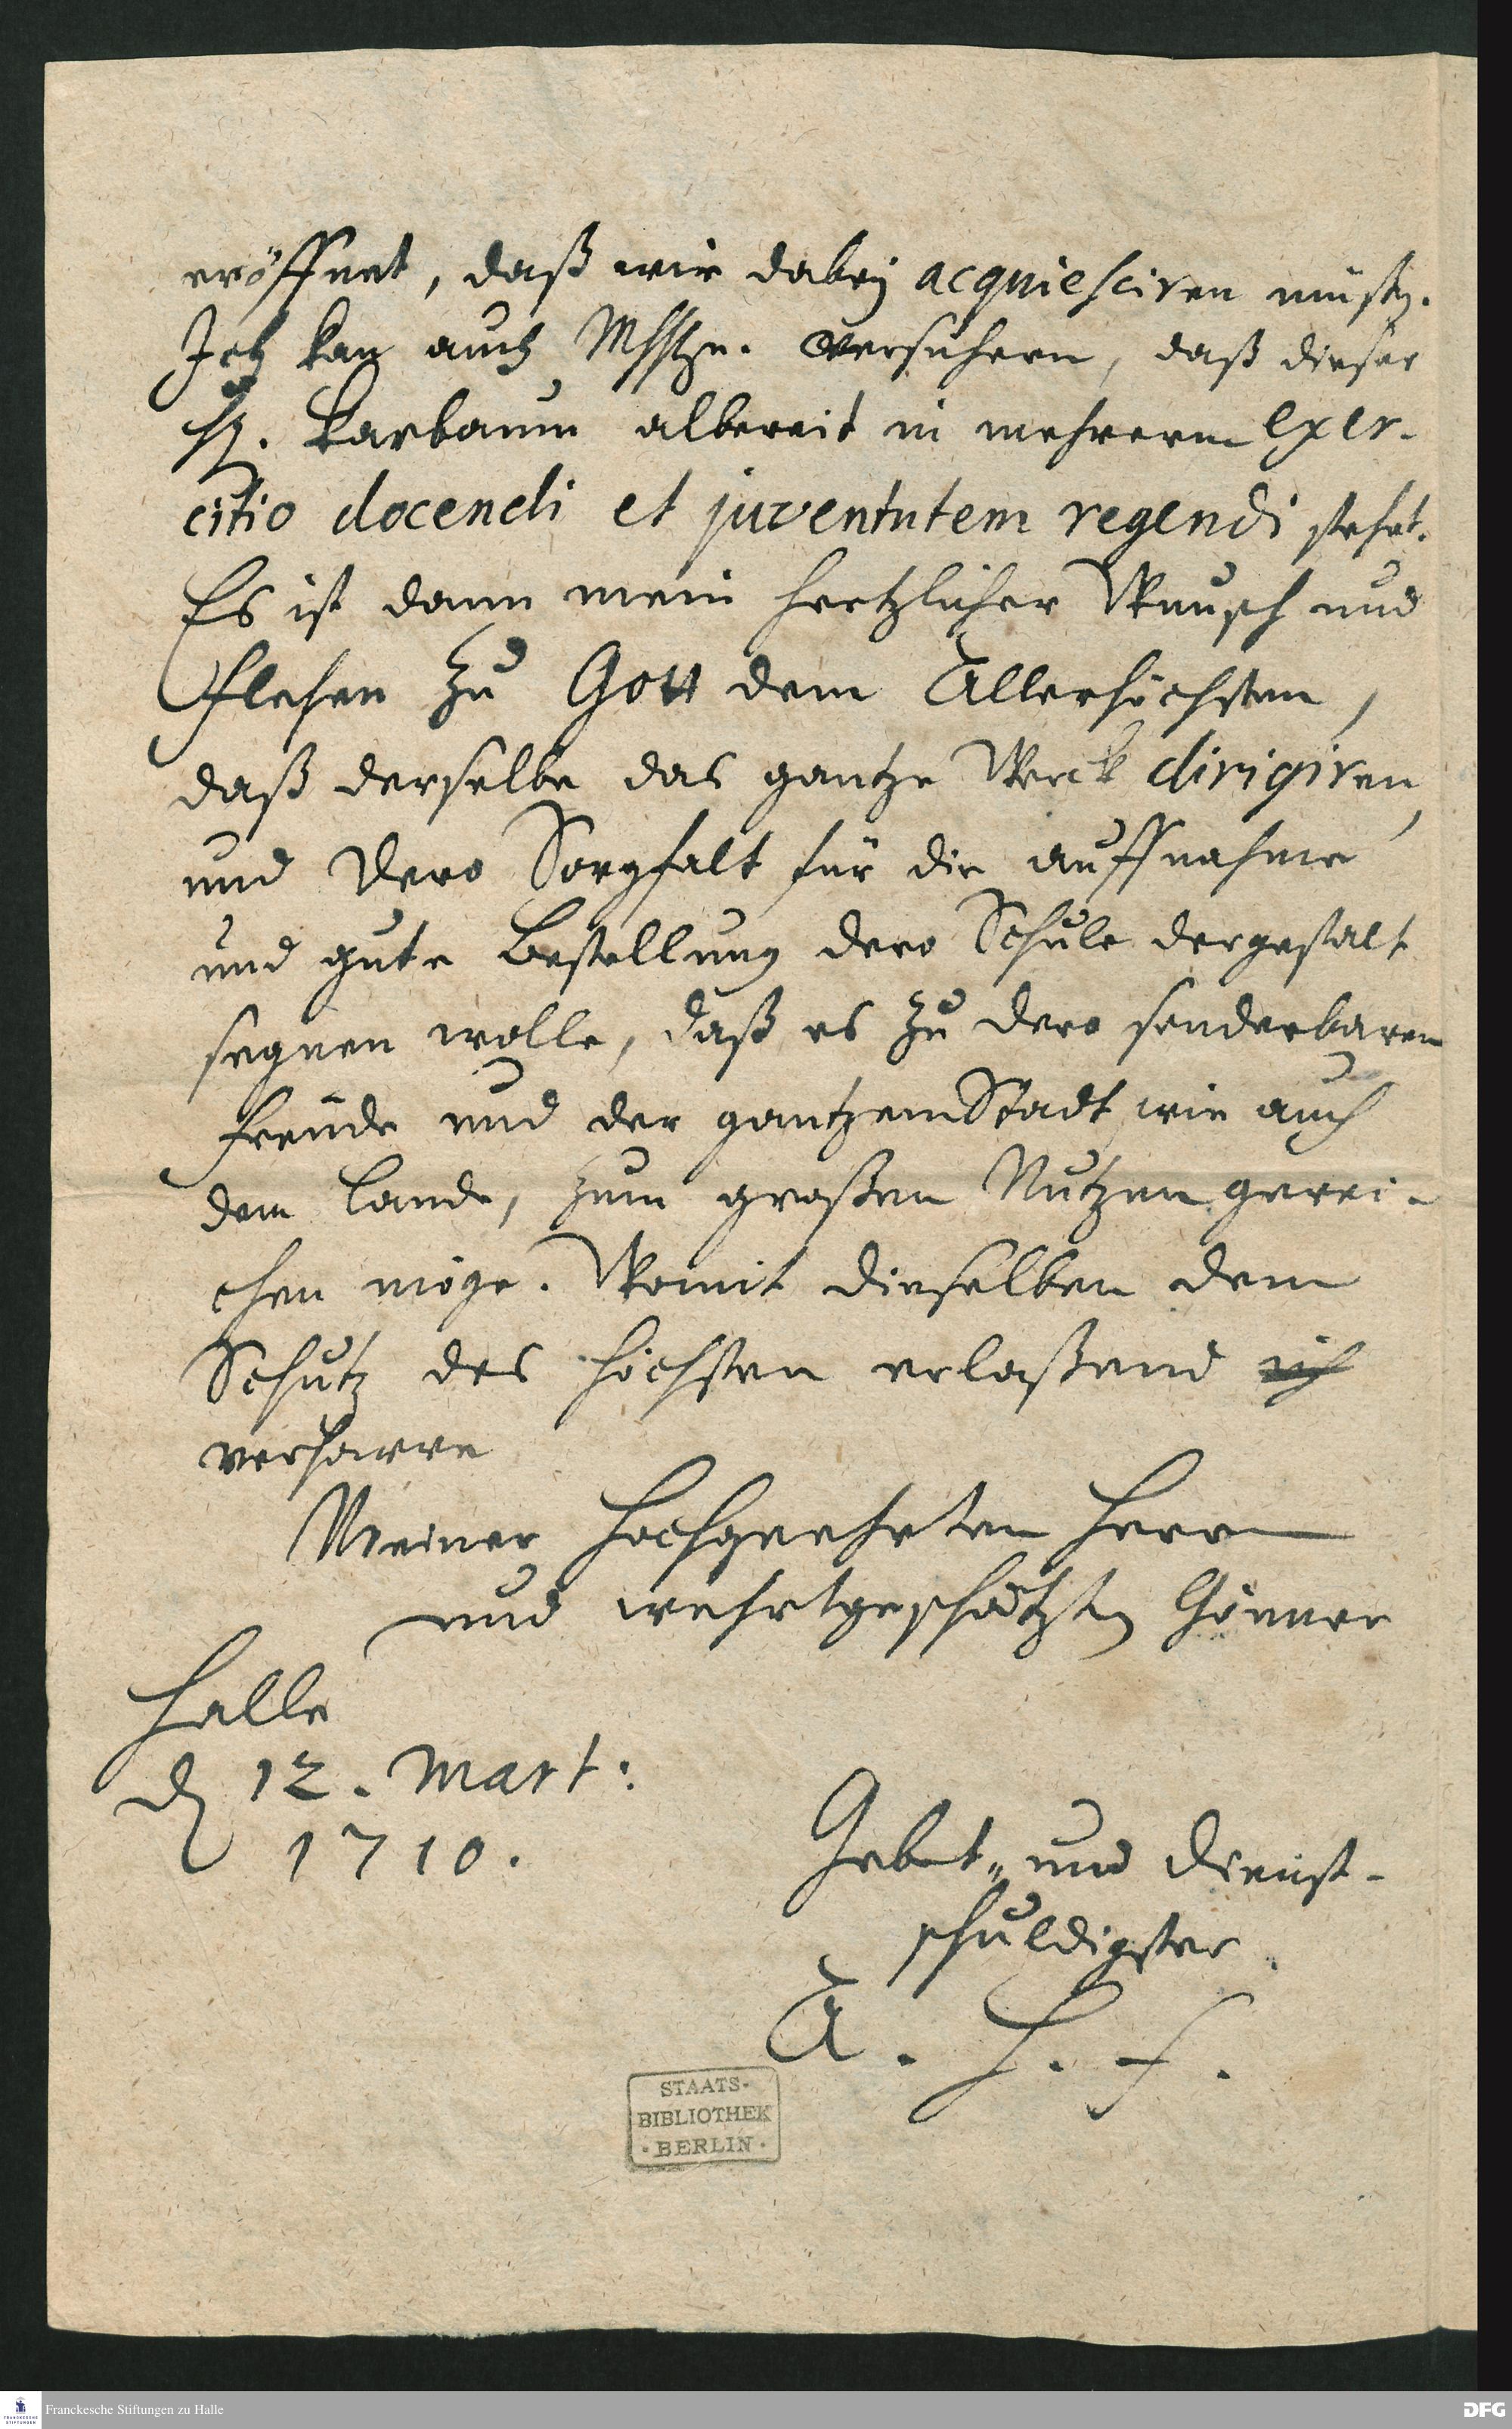 eröffnet, daß wir dabey acquiesciren müsten.
Ich kan auch versichern, daß dieser
H. Karbaum albereit in mehrerm exer-
citio docendi et juventutem regendi stehet.
Es ist dann mein hertzlicher Wunsch und
Flehen zu Gott dem Allerhöchsten,
daß derselbe das gantze Werck dirigiren,
und Dero Sorgfalt für die auffnahme
und gute Bestellung dero Schule dergestalt
segnen wolle, daß es zu dero sonderbaren
Freude und der gantzen Stadt, wie auch
dem Lande, zum großen Nutzen gerei-
chen möge. Womit dieselben dem
Schutz des Höchsten erlaßend ich
verharre
Meiner Hochgeehrten Herrn
und wehrtgeschätzten Gönner
Halle
d 12. Mart:
1710.
Gebet- und Dienst-
schuldigster
A. H. F.
STAATS-
BIBLIOTHEK
· BERLIN ·
FRANCKESCHE
STIFTUNGEN
Franckesche Stiftungen zu Halle
DFG